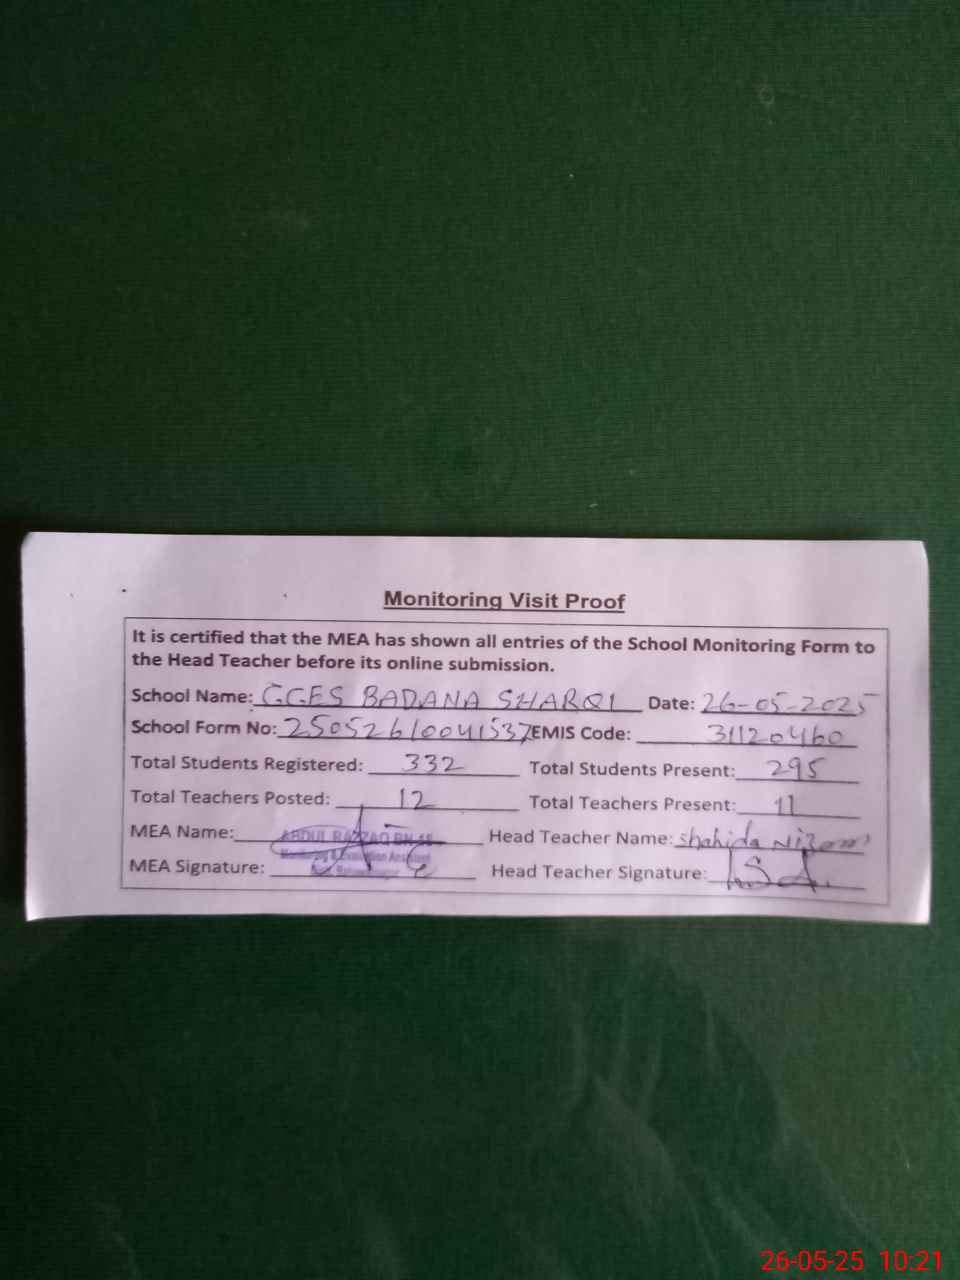 Monitoring Visit Proof
It is certified that the MEA has shown all entries of the School Monitoring Form to
the Head Teacher before its online submission.
School Name: GGES BADANA SHARQI Date: 26-05-2025
School Form No: 25052610041537 EMIS Code: 31120460
Total Students Registered: 332 Total Students Present: 295
Total Teachers Posted: 12 Total Teachers Present: 11
MEA Name: ABDUL RAZZAQ Head Teacher Name: Shahida
Monitoring & Evaluation Assistant
MEA Signature: Head Teacher Signature:
26-05-25 10:21